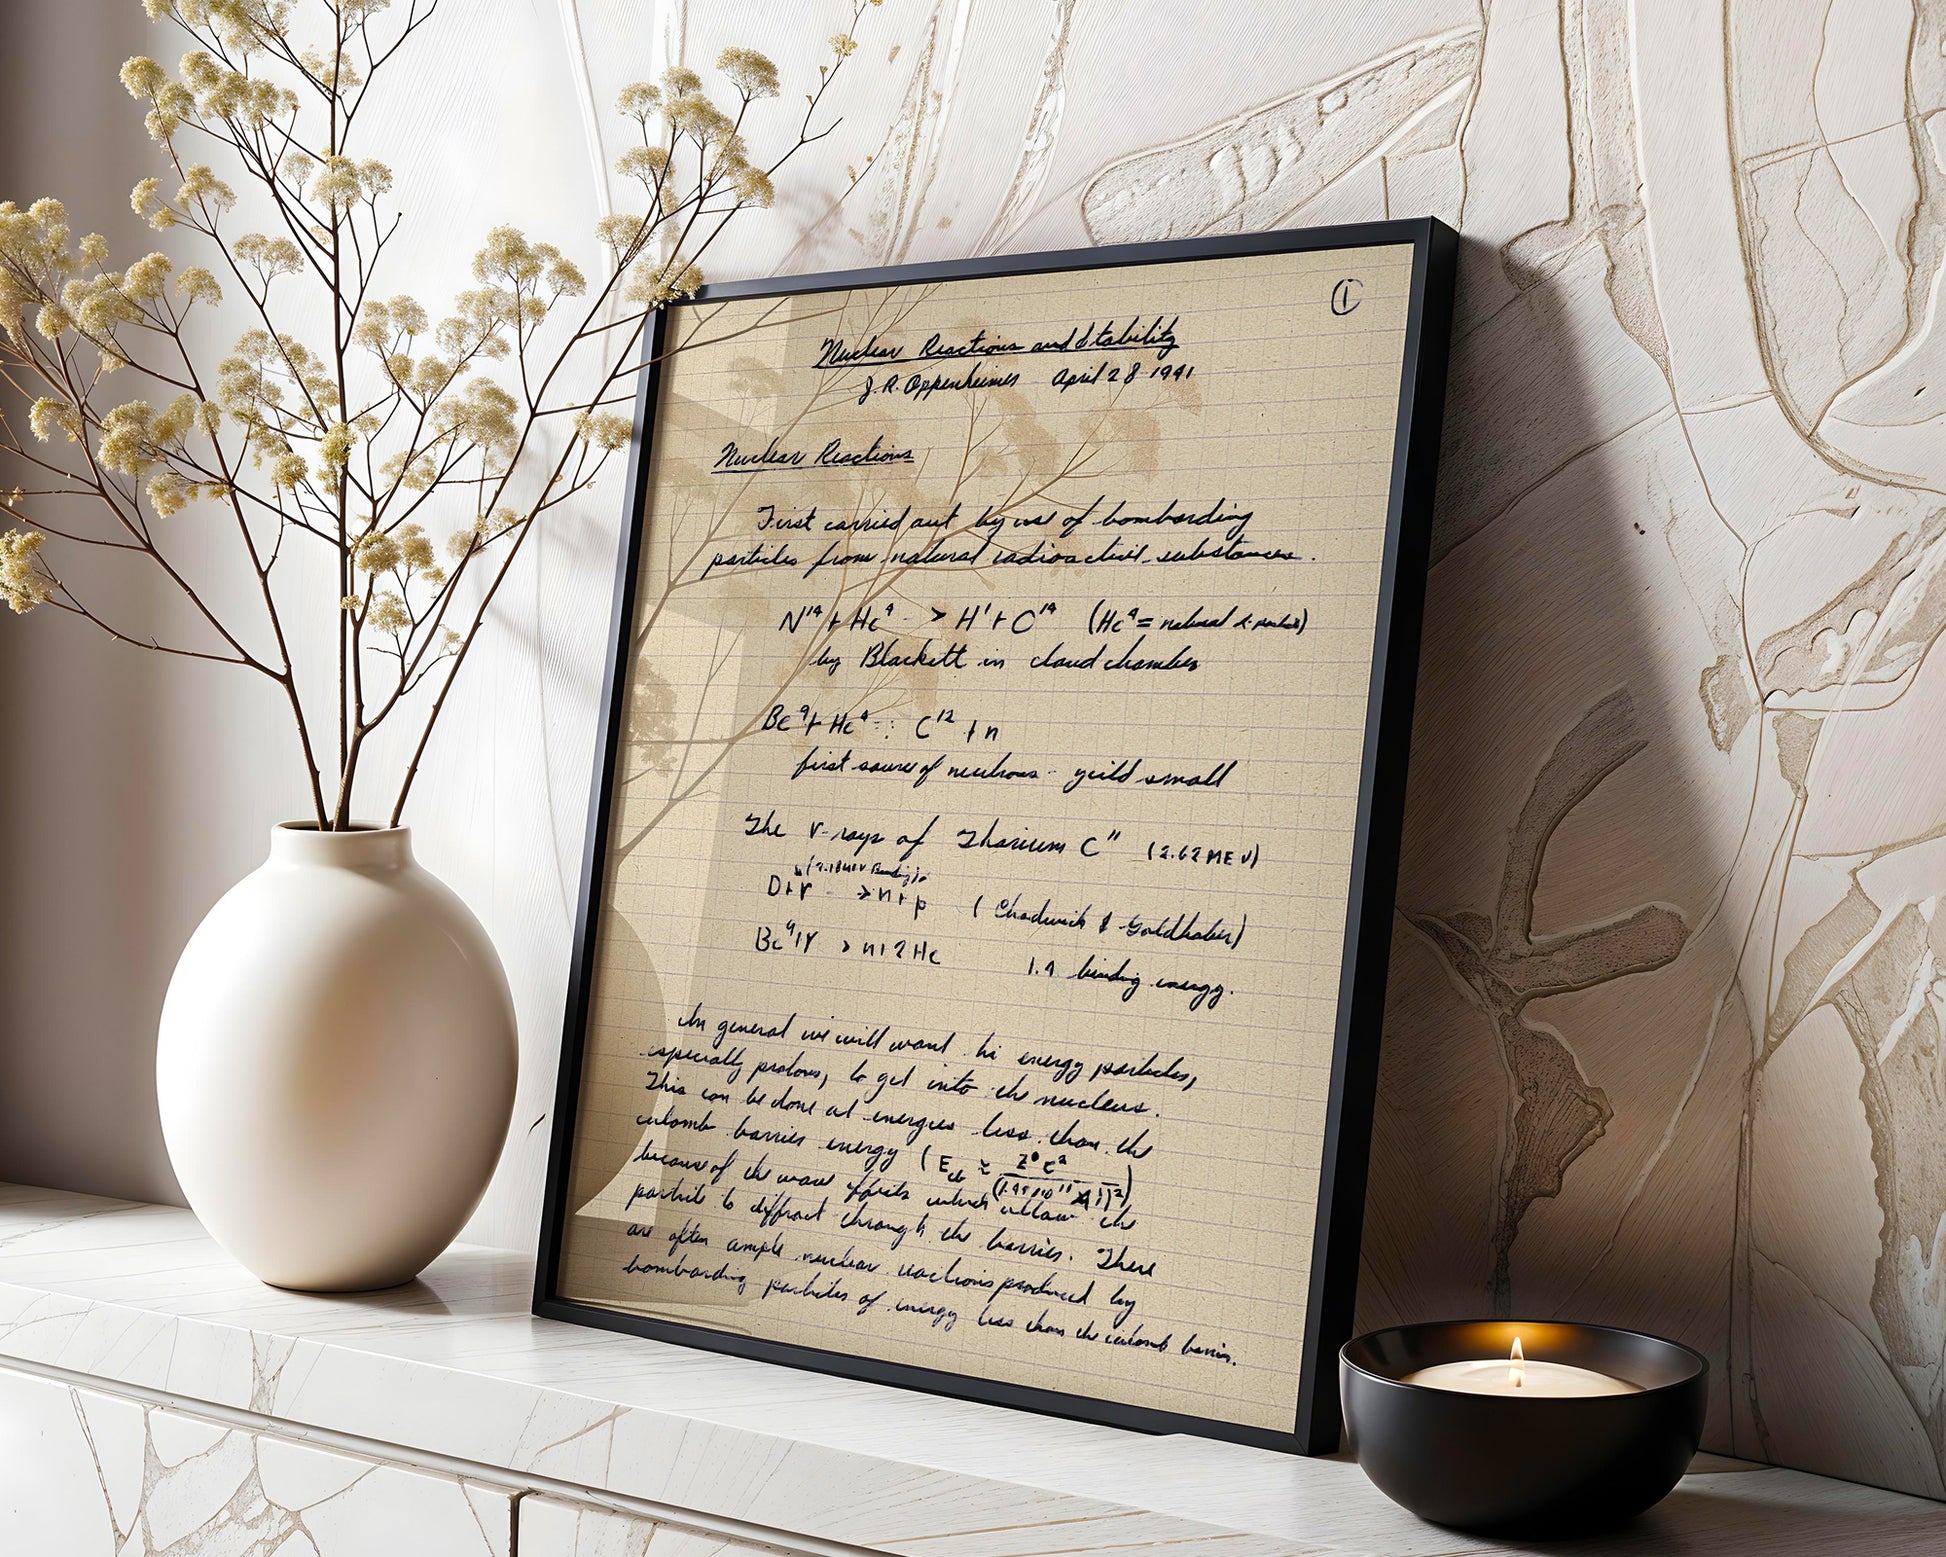 ①
Nuclear Reactions and Stability
J. R. Oppenheimer April 28 1941
Nuclear Reactions
First carried out by use of bombarding
particles from natural radioactive substances.
N¹⁴ + He⁴ -> H¹ + O¹⁴ (He⁴ = natural α-particle)
by Blackett in cloud chamber
Be⁹ + He⁴ C¹² + n
first source of neutrons - yield small
The γ-rays of Thorium C" (2.62 MEV)
(2.18 MEV Binding)
D + γ -> n + p (Chadwick & Goldhaber)
Be⁹ + γ > n + 2He 1.4 binding energy.
In general we will want hi energy particles,
especially protons, to get into the nucleus.
This can be done at energies less than the
coulomb barrier energy (
because of the wave which allow the
particle to diffract through the barrier. There
are often ample nuclear reactions produced by
bombarding particles of energy less than the coulomb barrier.